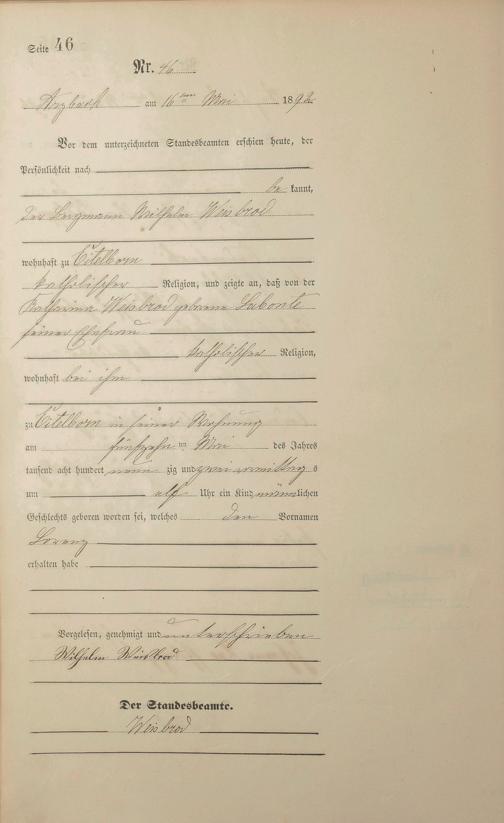 Seite 46
Nr. 46
Arzbach am 16ten Mai 1892
Vor dem unterzeichneten Standesbeamten erschien heute, der
Persönlichkeit nach
be kannt,
der Bergmann Wilhelm Weisbrod
wohnhaft zu Eitelborn
katholischer Religion, und zeigte an, daß von der
Katharina Weisbrod geborene Labonte
seiner Ehefrau
katholischer Religion,
wohnhaft bei ihm
zu Eitelborn in seiner Wohnung
am fünfzehnten Mai des Jahres
tausend acht hundert neun zig und zwei vormittags
um elf Uhr ein Kind männlichen
Geschlechts geboren worden sei, welches den Vornamen
Lorenz
erhalten habe
Vorgelesen, genehmigt und unterschrieben
Wilhelm Weisbrod
Der Standesbeamte.
Weisbrod